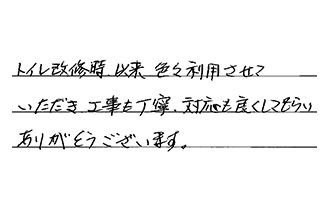 トイレ改修時以来色々利用させて
いただき工事も丁寧、対応も良くしてもらい
ありがとうございます。